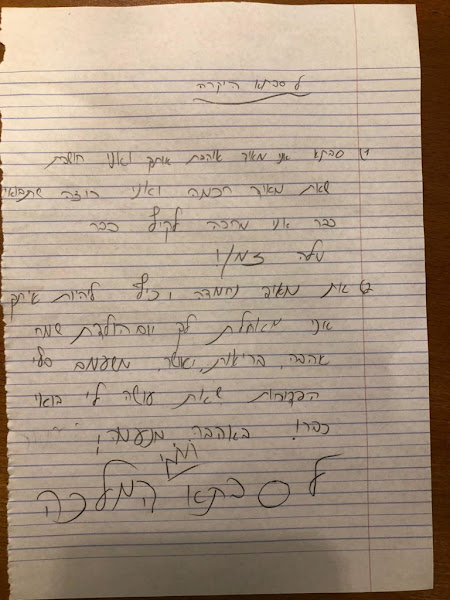 לסבתא היקרה
1) סבתא אני מאוד אוהבת אותך ואני חושבת
שאת מאוד חכמה ואני רוצה שתבואי
כבר אני מחכה לקיץ כבר
2) את מאוד נחמדה וכיף להיות איתך
אני מאחלת לך יום הולדת שמח
אהבה, בריאות, ואושר. משעמם בלי
הבדיחות שאת עושה לי בואי
כבר! באהבה מנעמה!
לסבתא המלכה